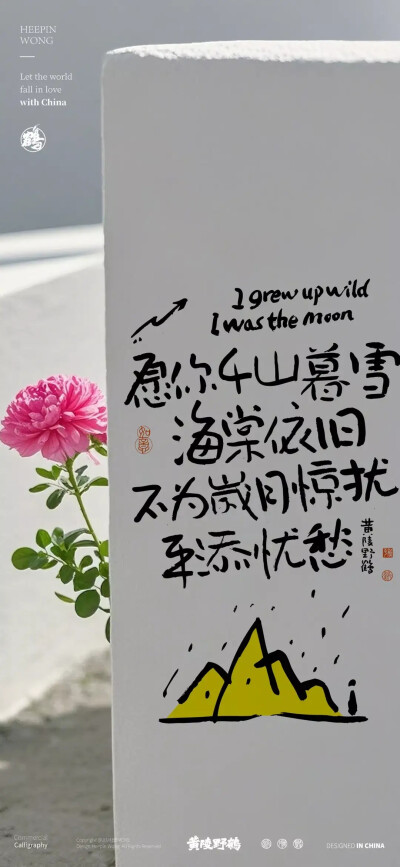 HEEPIN
WONG
Let the world
fall in love
with China
鹤
I grew up wild
I was the moon
愿你千山暮雪
海棠依旧
不为岁月惊扰
平添忧愁
黄陵野鹤
Commercial
Calligraphy
黄陵野鹤
DESIGNED IN CHINA